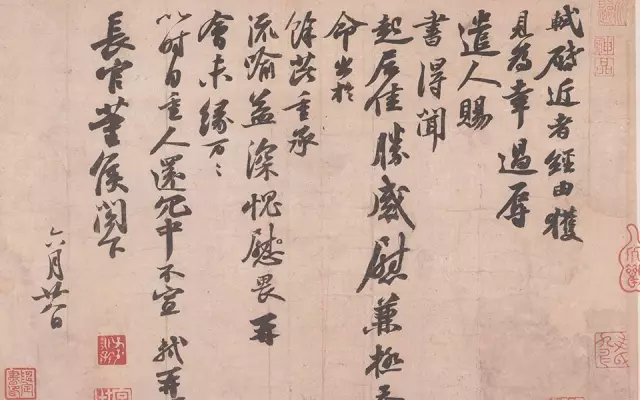 軾啟近者經由獲
見為幸過辱
遣人賜
書得聞
起居佳勝感慰兼極忝
命出於
餘芘重承
流喻益深愧慰畏再
會未緣万〻
以時自重人還冗中不宣 軾再
長官董侯閣下
六月廿八日